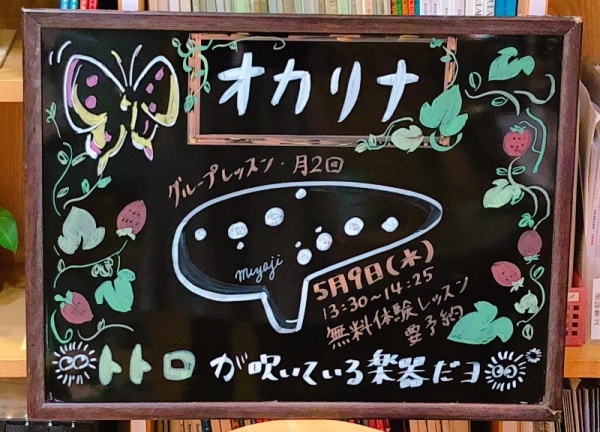 オカリナ
グループレッスン・月2回
miyaji
5月9日(水)
13:30~14:25
無料体験レッスン
要予約
トトロが吹いている楽器だヨ